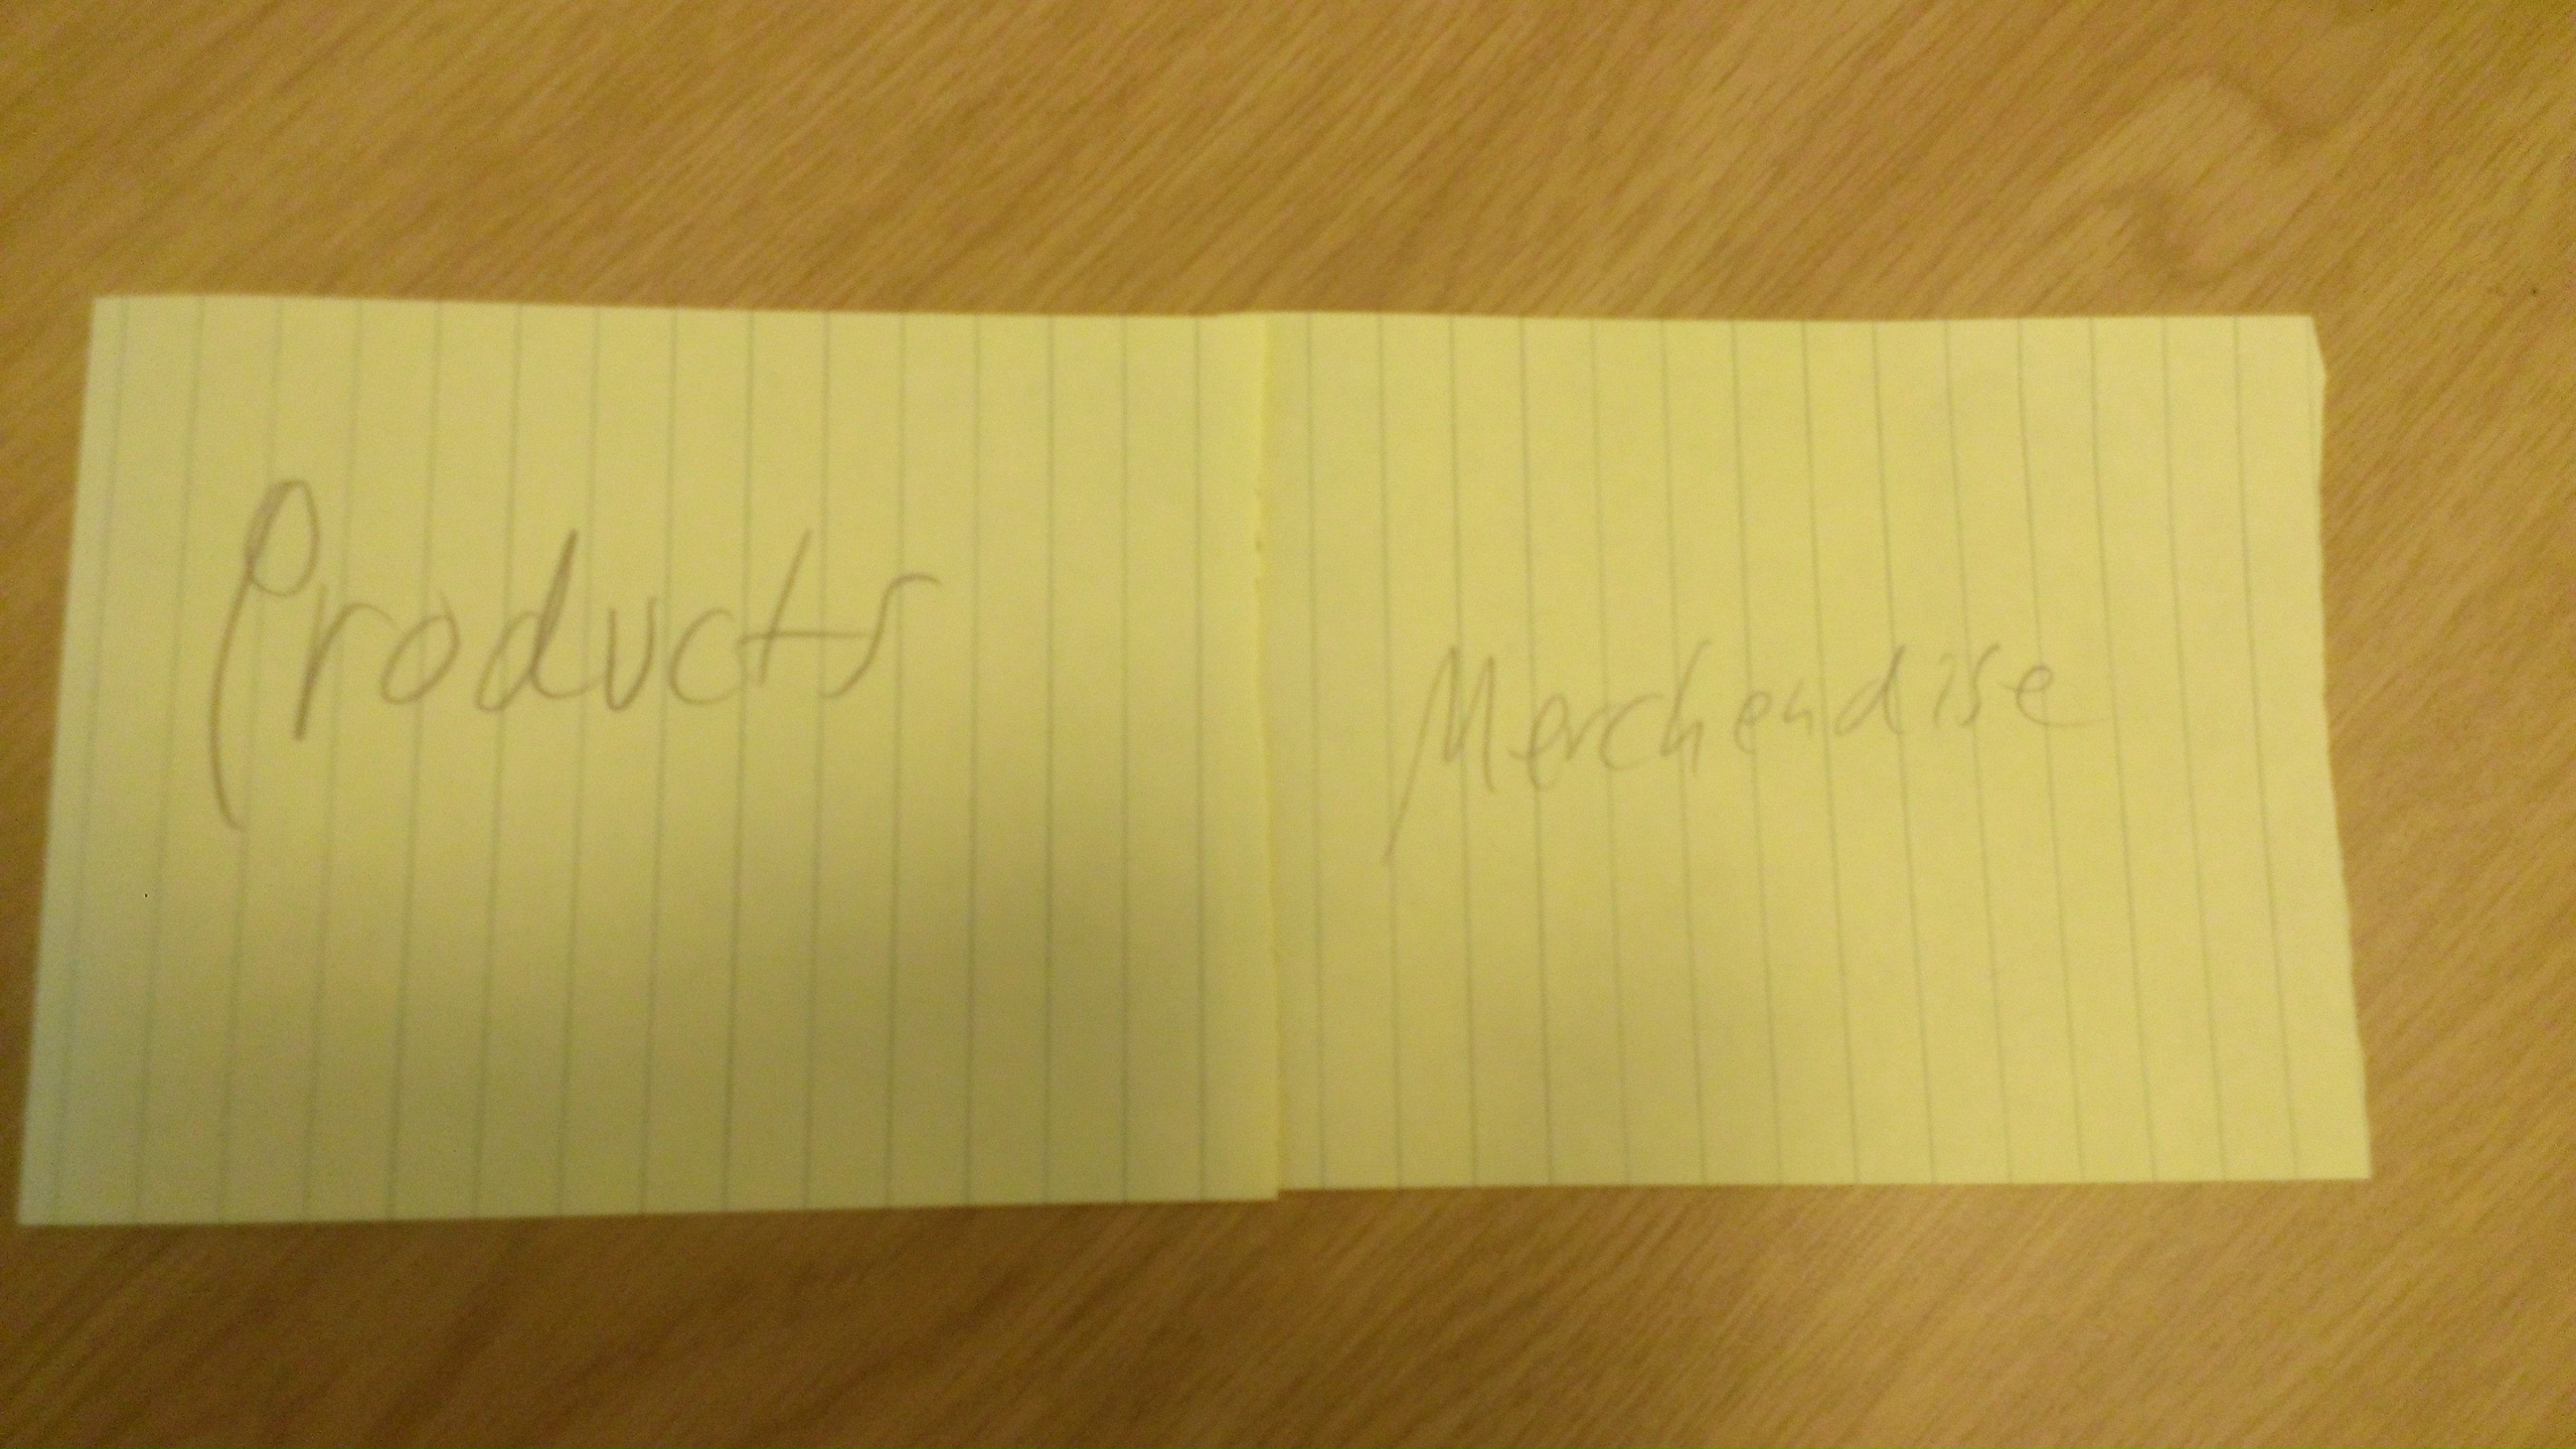 Products
Merchendise